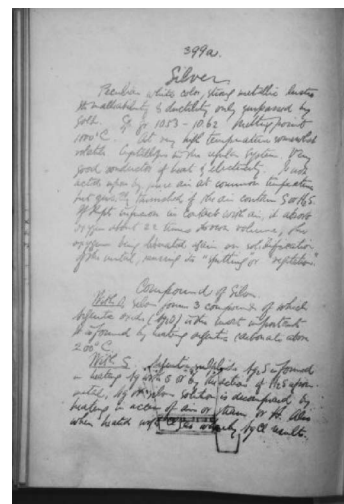 399a.
Silver.
Peculiar white color, strong metallic lustre
Its malleability & ductility only surpassed by
gold. Sp gr 10.53 - 10.62 Melting point
1000°C. At very high temperature somewhat
volatile. in the regular system. Very
good conductor of heat & electricity. Is not
acted upon by pure air at common temperature
but quickly tarnished if the air contain S or H2S.
If kept in contact with air, it absorbs
oxygen about 22 times its own volume, the
oxygen being liberated again on solidification
of the metal, causing its "spitting or "vegetation".
Compounds of Silver.
With O, silver forms 3 compounds of which
argentic oxide (Ag2O) is the most important
It is formed by heating argentic carbonate above
200°C.
With S. Argentic sulphide Ag2S is formed
in heating Ag with S or by the action of H2S upon
metal, by silver solution is decomposed by
heating in access of air or steam or H. Also
when heated with by Cl results.